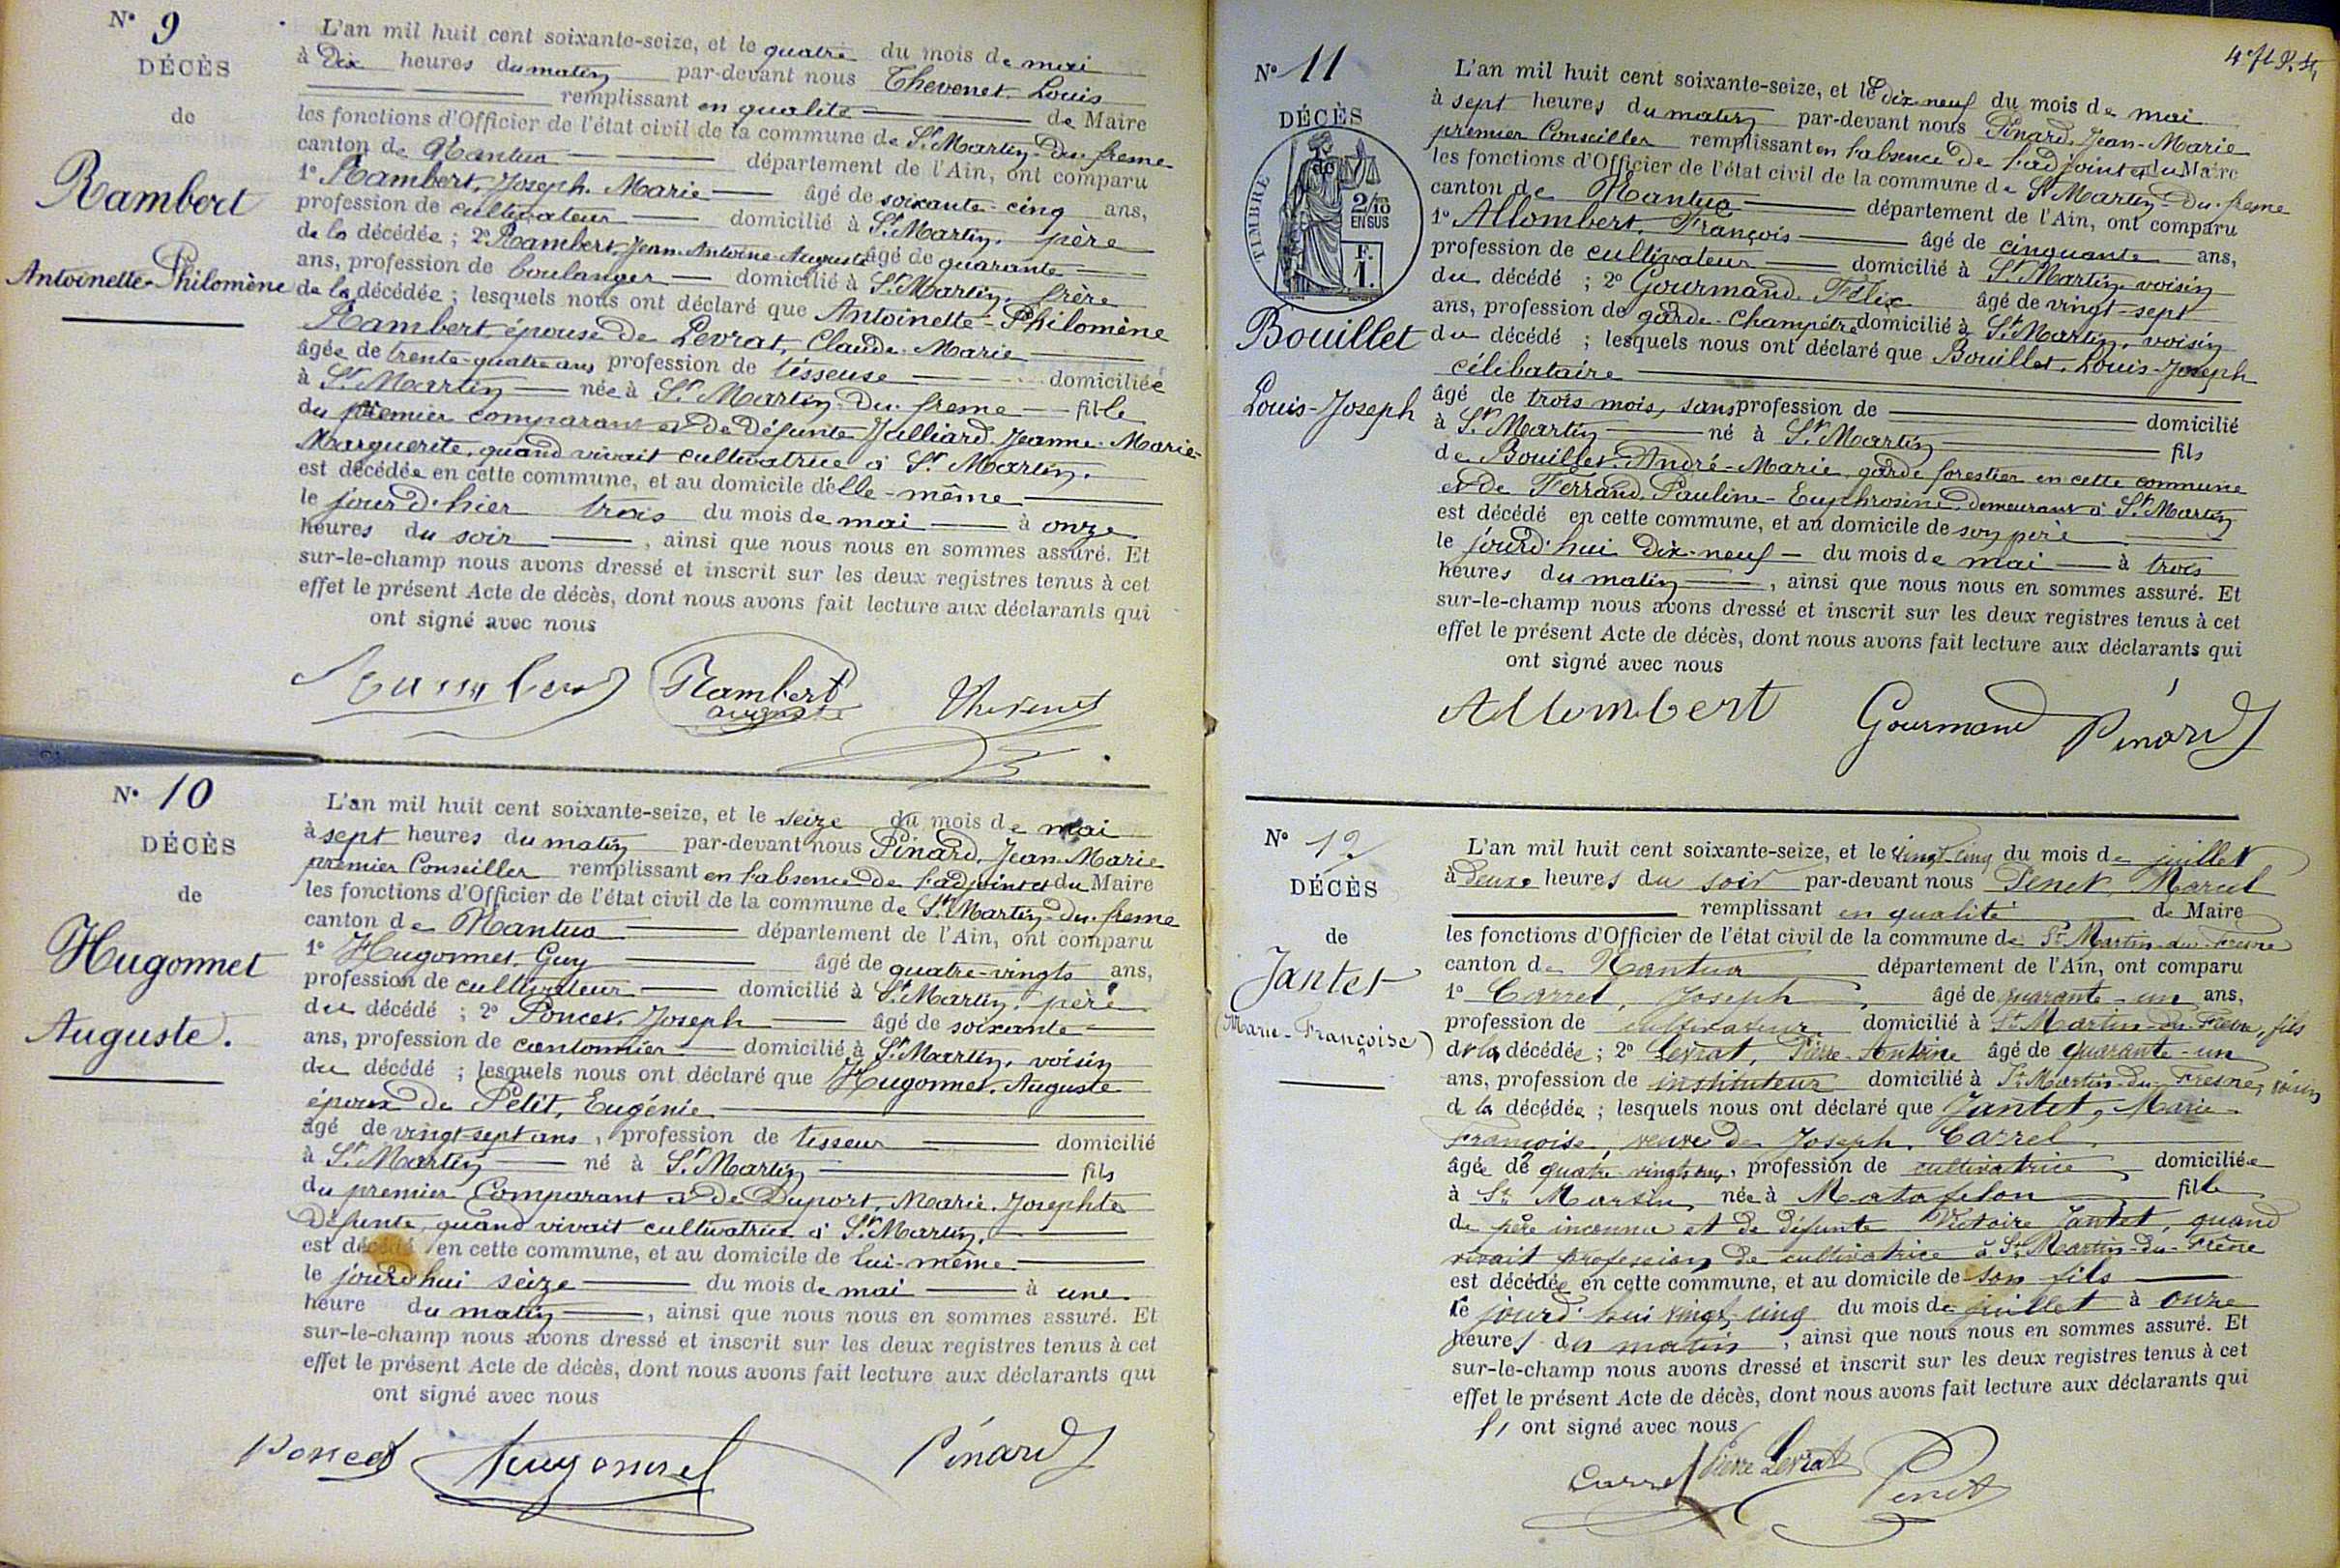 N° 9
DÉCÈS
de
Rambert
Antoinette-Philomène
L'an mil huit cent soixante-seize, et le quatre du mois de mai
à Dix heures du matin par-devant nous Thevenet, Louis
remplissant en qualité de Maire
les fonctions d'Officier de l'état civil de la commune de St Martin-du-fresne
canton de Nantua département de l'Ain, ont comparu
1° Rambert, Joseph. Marie âgé de soixante-cinq ans,
profession de cultivateur domicilié à St Martin, père
de la décédée ; 2° Rambert, Jean-Antoine-Auguste âgé de quarante
ans, profession de boulanger domicilié à St Martin, frère
de la décédée ; lesquels nous ont déclaré que Antoinette-Philomène
Rambert, épouse de Levrat, Claude-Marie
âgée de trente-quatre ans profession de tisseuse domiciliée
à St Martin née à St Martin-du-fresne fille
du premier comparant et de Défunte Julliard Jeanne-Marie-
Marguerite, quand vivait cultivatrice à St Martin.
est décédée en cette commune, et au domicile d'elle-même
le jourd'hier trois du mois de mai à onze
heures du soir, ainsi que nous nous en sommes assuré. Et
sur-le-champ nous avons dressé et inscrit sur les deux registres tenus à cet
effet le présent Acte de décès, dont nous avons fait lecture aux déclarants qui
ont signé avec nous
Rambert Rambert Thevenet
auguste
N° 10
DÉCÈS
de
Hugonnet
Auguste.
L'an mil huit cent soixante-seize, et le seize du mois de mai
à sept heures du matin par-devant nous Pinard, Jean-Marie
premier Conseiller remplissant en l'absence de l'adjoint et du Maire
les fonctions d'Officier de l'état civil de la commune de St Martin-du-fresne
canton de Nantua département de l'Ain, ont comparu
1° Hugonnet, Guy âgé de quatre-vingts ans,
profession de cultivateur domicilié à St Martin, père
du décédé ; 2° Poncet, Joseph âgé de soixante
ans, profession de cantonnier domicilié à St Martin, voisin
du décédé ; lesquels nous ont déclaré que Hugonnet, Auguste
époux de Petit, Eugénie
âgé de vingt-sept ans, profession de tisseur domicilié
à St Martin né à St Martin fils
du premier Comparant et de Duport, Marie. Josephte
Défunte, quand vivait cultivatrice à St Martin.
est décédé en cette commune, et au domicile de lui-même
le jourd'hui seize du mois de mai à une
heure du matin, ainsi que nous nous en sommes assuré. Et
sur-le-champ nous avons dressé et inscrit sur les deux registres tenus à cet
effet le présent Acte de décès, dont nous avons fait lecture aux déclarants qui
ont signé avec nous
Poncet Hugonnet Pinard
N° 11
DÉCÈS
de
TIMBRE
2/10
EN SUS
F.
1.
Bouillet
Louis-Joseph
L'an mil huit cent soixante-seize, et le dix-neuf du mois de mai
à sept heures du matin par-devant nous Pinard, Jean-Marie
premier Conseiller remplissant en l'absence de l'adjoint et du Maire
les fonctions d'Officier de l'état civil de la commune de St Martin-du-fresne
canton de Nantua département de l'Ain, ont comparu
1° Allombert, François âgé de cinquante ans,
profession de cultivateur domicilié à St Martin, voisin
du décédé ; 2° Gourmand, Félix âgé de vingt-sept
ans, profession de garde-champêtre domicilié à St Martin, voisin
du décédé ; lesquels nous ont déclaré que Bouillet, Louis-Joseph
célibataire
âgé de trois mois, sans profession de domicilié
à St Martin né à St Martin fils
de Bouillet, André-Marie, garde forestier en cette commune
et de Ferrand, Pauline-Euphrosine, demeurant à St Martin
est décédé en cette commune, et au domicile de son père
le jourd'hui Dix-neuf du mois de mai à trois
heures du matin, ainsi que nous nous en sommes assuré. Et
sur-le-champ nous avons dressé et inscrit sur les deux registres tenus à cet
effet le présent Acte de décès, dont nous avons fait lecture aux déclarants qui
ont signé avec nous
Allombert Gourmand Pinard
N° 12
DÉCÈS
de
Jantet
(Marie-Françoise)
L'an mil huit cent soixante-seize, et le vingt-cinq du mois de juillet
à deux heures du soir par-devant nous Penet, Marcel
remplissant en qualité de Maire
les fonctions d'Officier de l'état civil de la commune de St Martin-du-Fresne
canton de Nantua département de l'Ain, ont comparu
1° Carrel, Joseph, âgé de quarante-un ans,
profession de cultivateur domicilié à St Martin-du-Fresne, fils
de la décédée ; 2° Levrat, Pierre-Antoine âgé de quarante-un
ans, profession de instituteur domicilié à St Martin-du-Fresne, voisin
de la décédée ; lesquels nous ont déclaré que Jantet, Marie-
Françoise, veuve de Joseph Carrel
âgée de quatre-vingts ans, profession de cultivatrice domiciliée
à St Martin née à Matafelon fille
de père inconnu et de défunte Victoire Jantet, quand
vivait profession de cultivatrice à St Martin-du-Frêne
est décédée en cette commune, et au domicile de son fils
le jourd'hui vingt-cinq du mois de juillet à onze
heures du matin, ainsi que nous nous en sommes assuré. Et
sur-le-champ nous avons dressé et inscrit sur les deux registres tenus à cet
effet le présent Acte de décès, dont nous avons fait lecture aux déclarants qui
ont signé avec nous
Carrel Pierre Levrat Penet